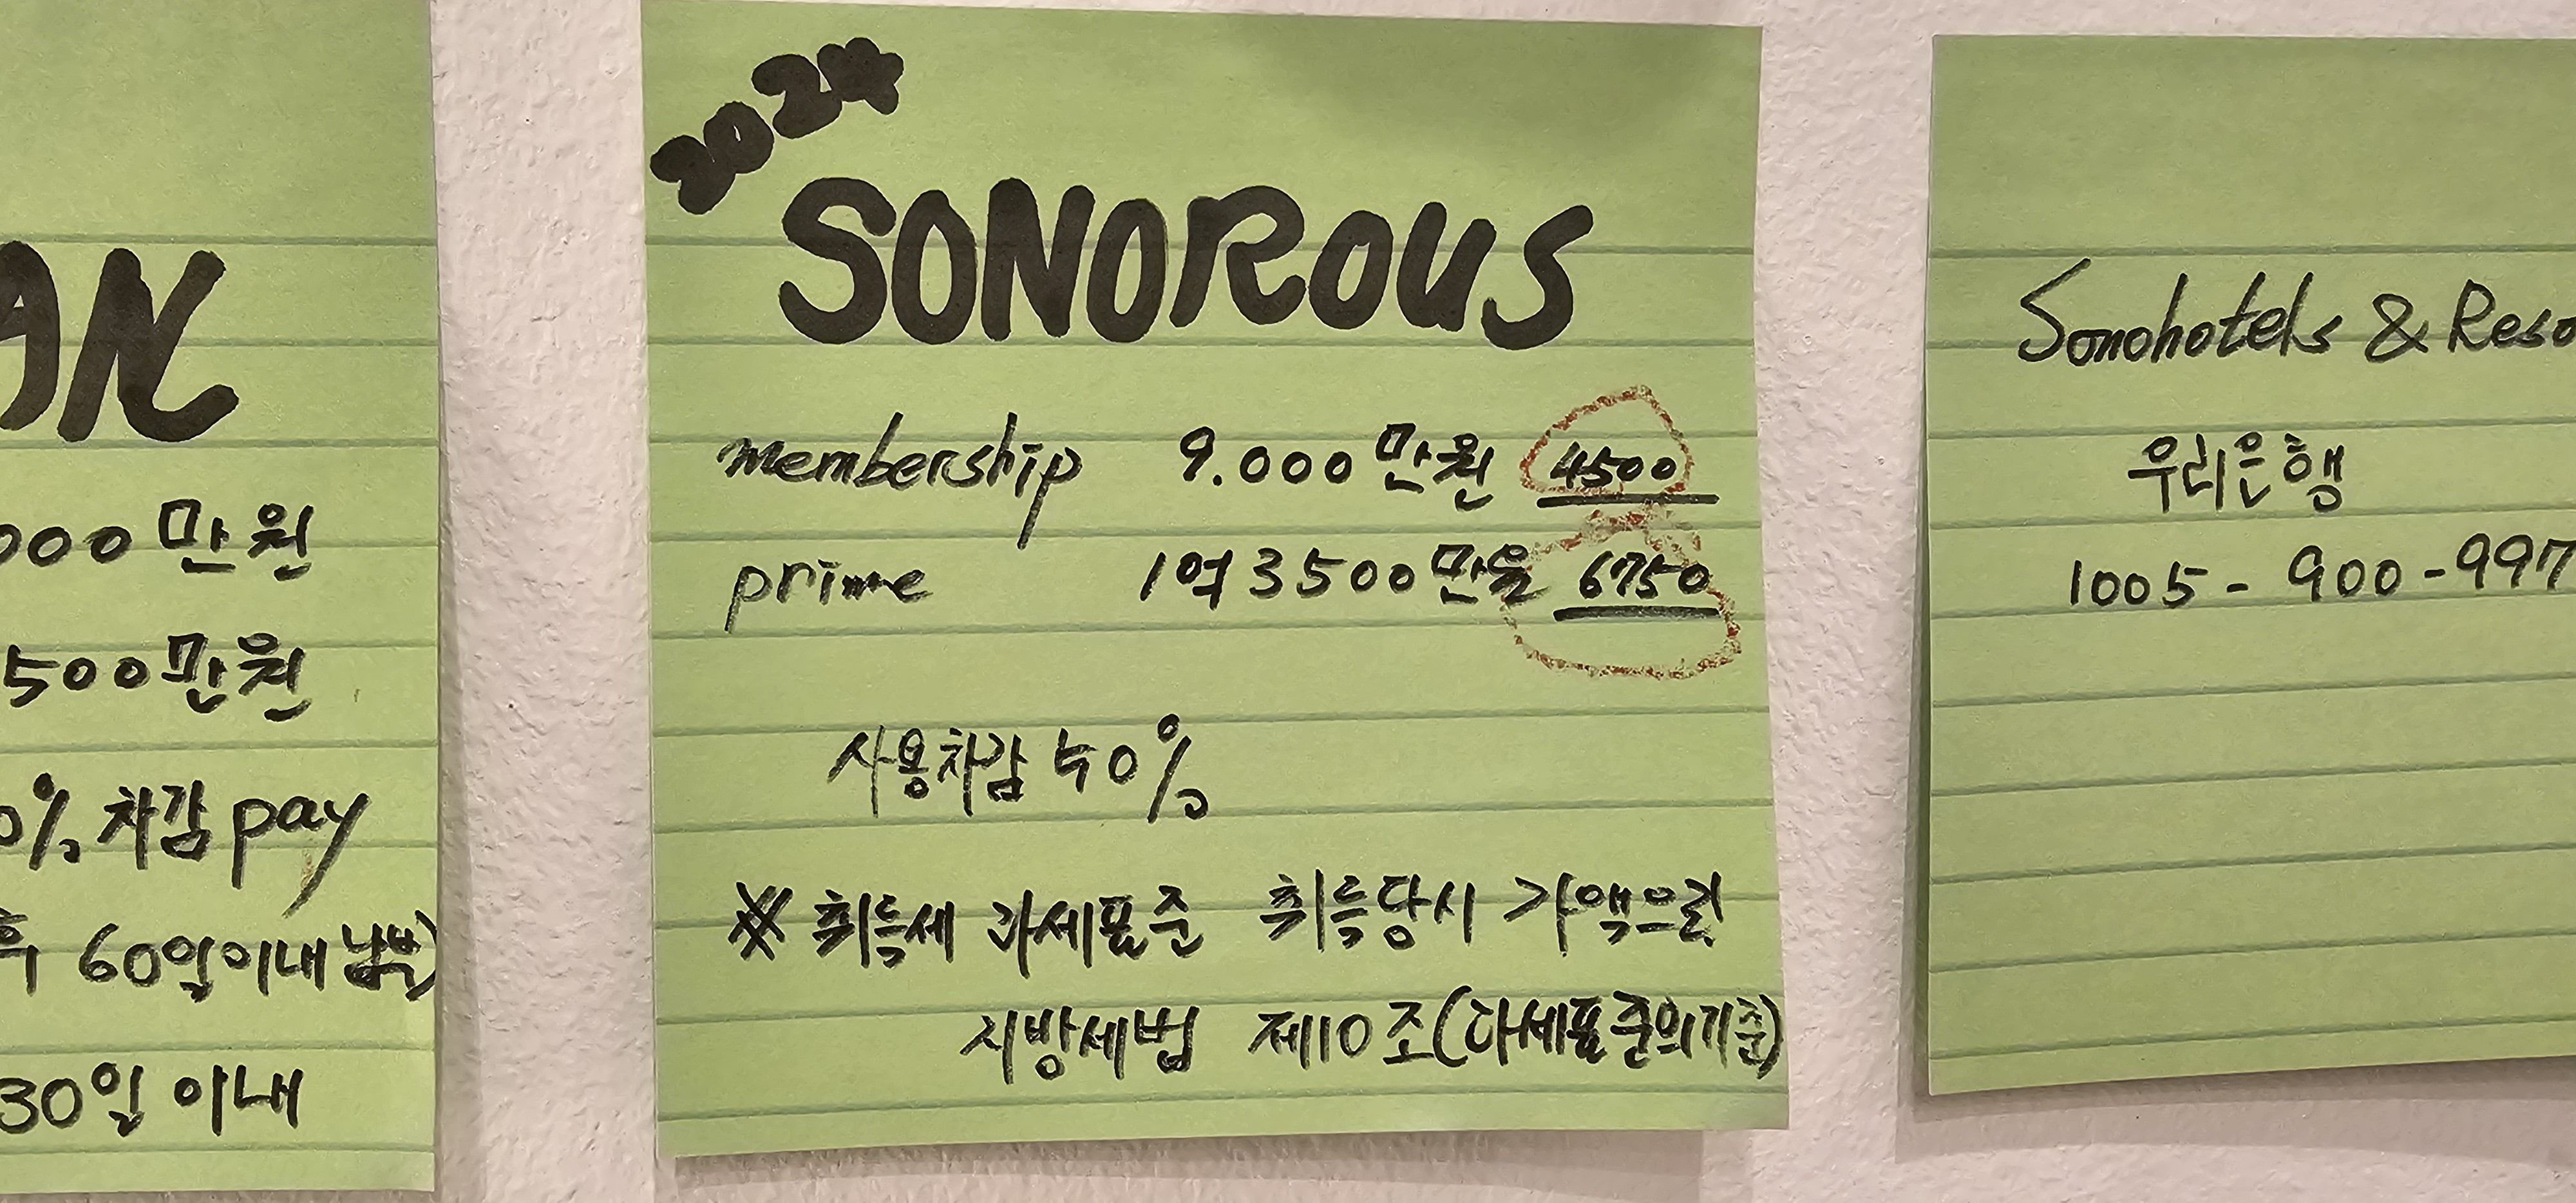 AN
000만원
500만원
0% 차감 pay
후 60일이내 납부)
30일 이내
2024
SONOROUS
membership 9.000만원 4500
prime 1억3500만원 6750
사용차감 50%
※ 취득세 과세표준 취득당시 가액으로
지방세법 제10조(과세표준의기준)
Sonohotels & Reso
우리은행
1005-900-997